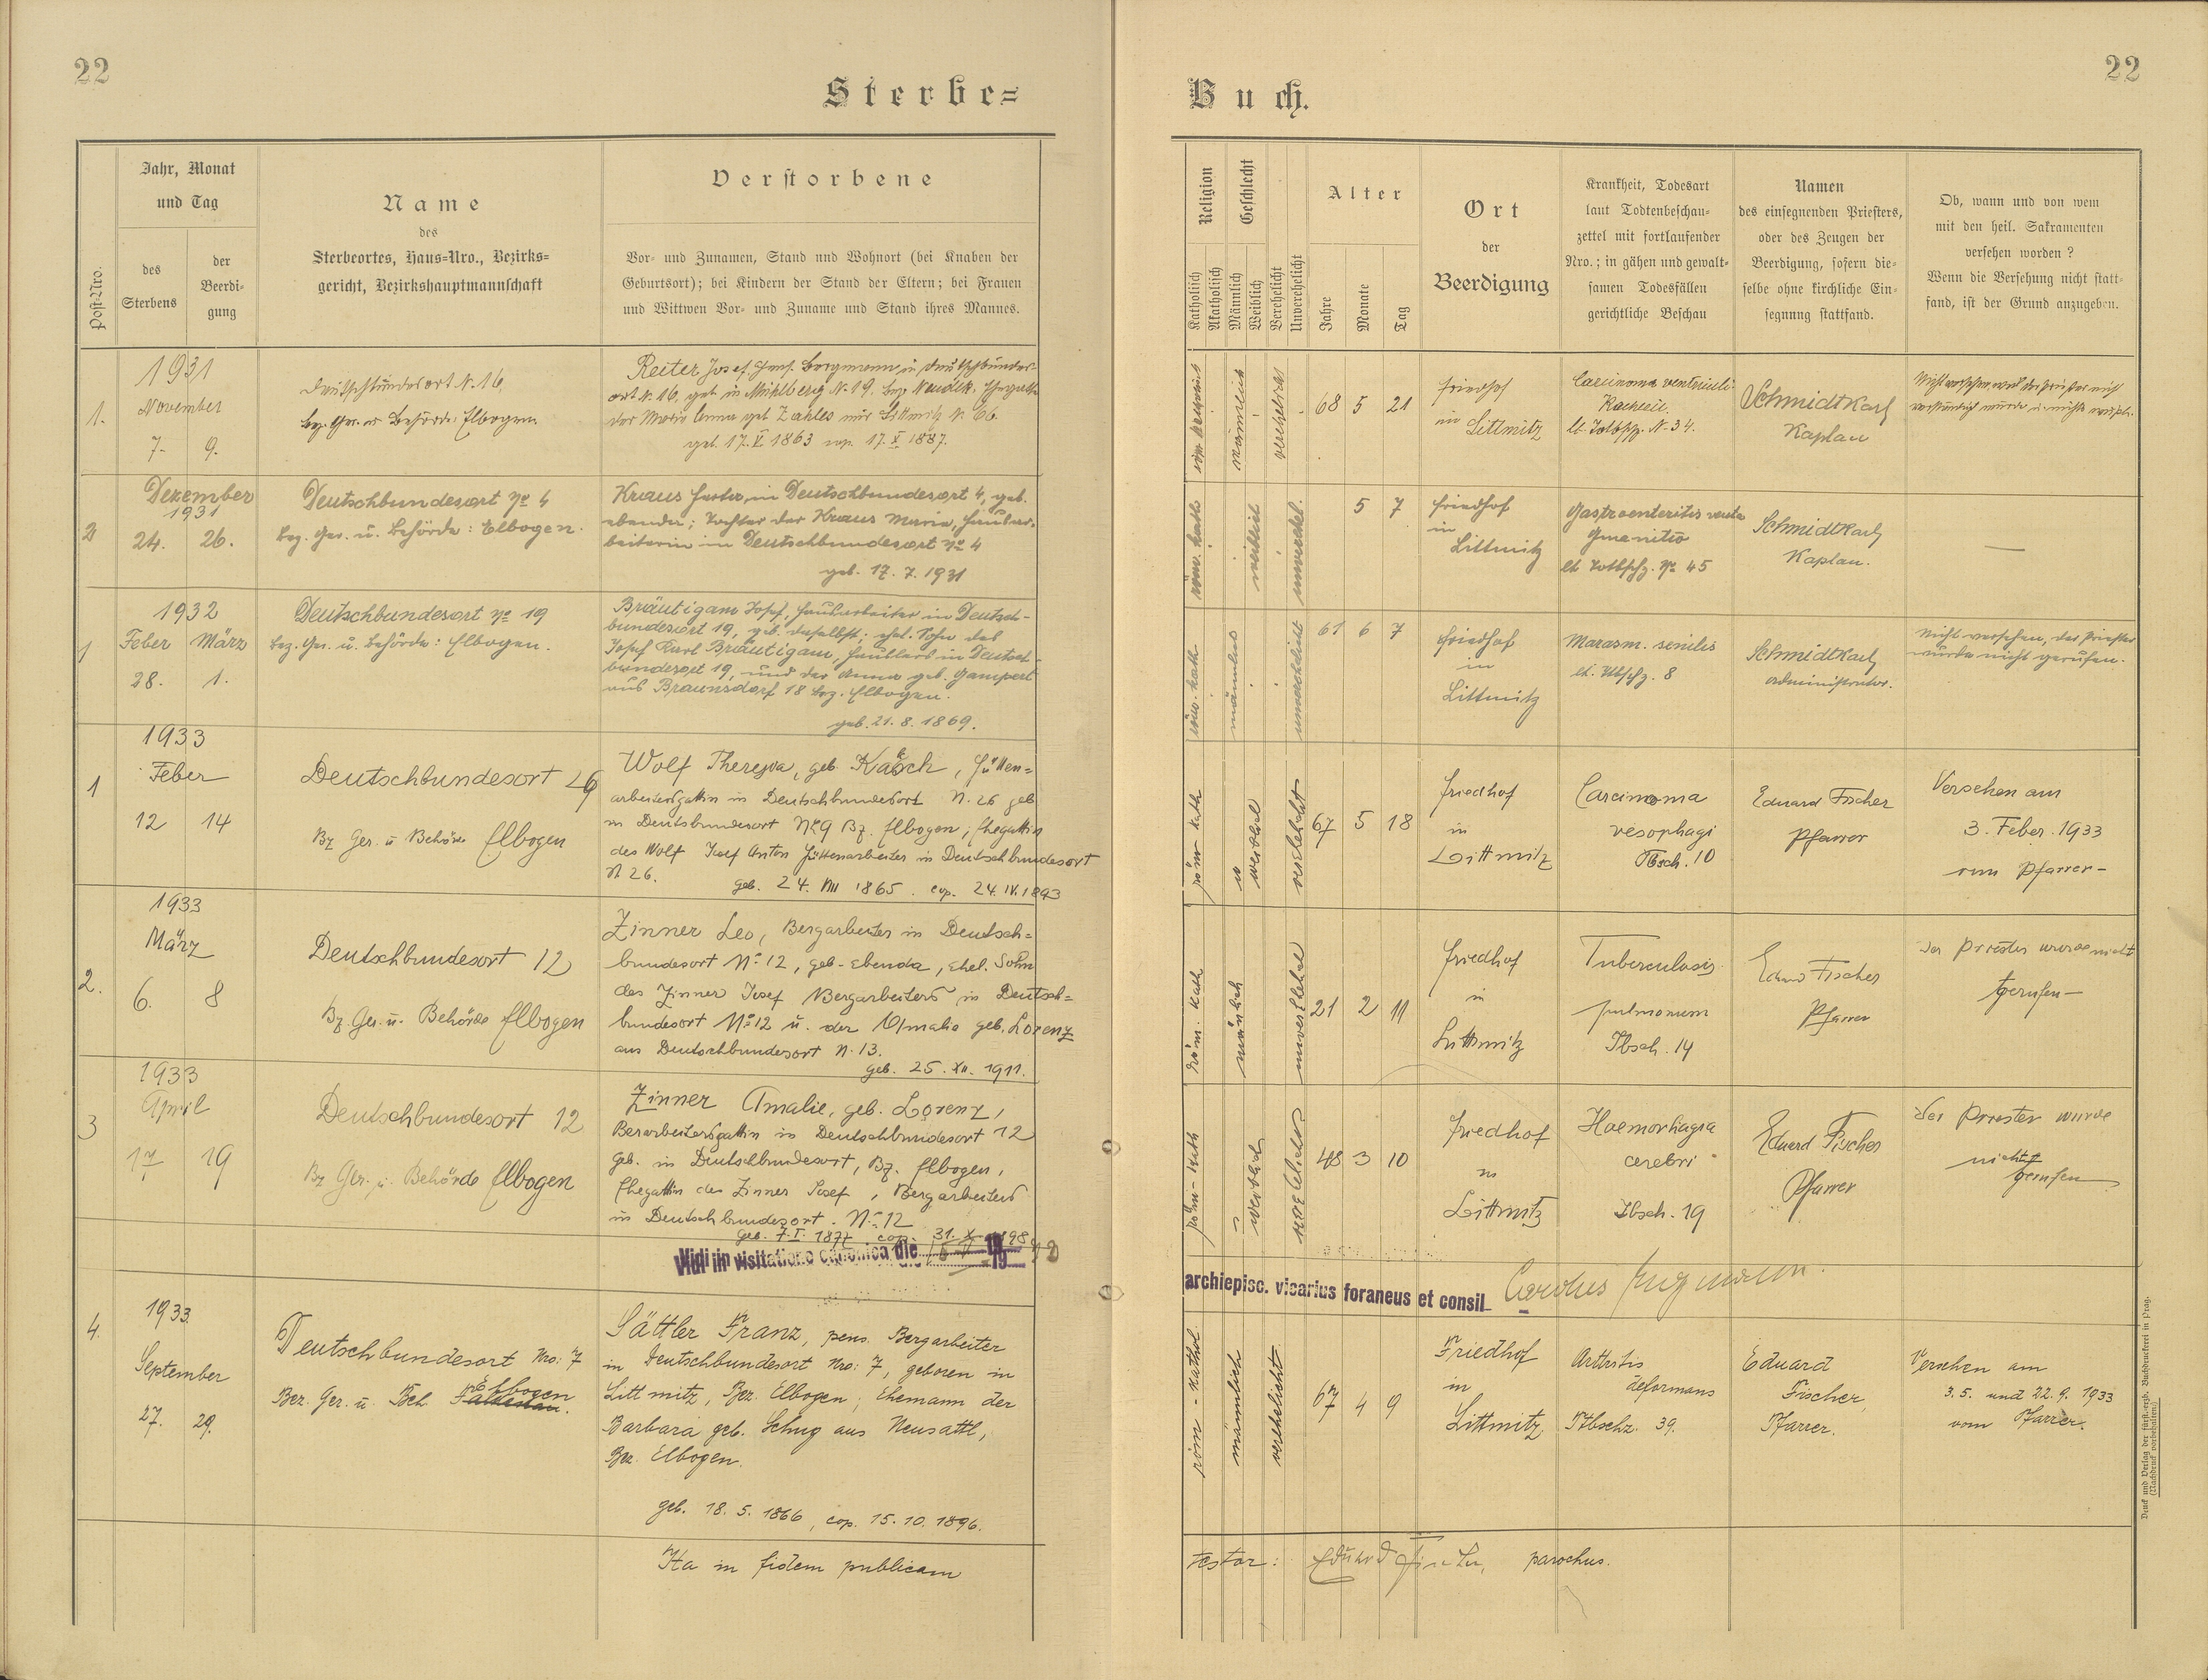 22
Sterbe=
Jahr, Monat
und Tag
Post-Nro.
des
Sterbens
der
Beerdi-
gung
Name
des
Sterbeortes, Haus-Nro., Bezirks-
gericht, Bezirkshauptmannschaft
Verstorbene
Vor- und Zunamen, Stand und Wohnort (bei Knaben der
Geburtsort); bei Kindern der Stand der Eltern; bei Frauen
und Wittwen Vor- und Zuname und Stand ihres Mannes.
1.
1931
November
7. 9.
Deutschbundesort N. 16,
bez. Ger. u. Behörde: Elbogen
Reiter Josef, Bergmann in Deutschbundes-
ort N. 16, geb. in Mühlberg N. 19, bez. Neudek, Ehegatte
der Maria Anna geb. Zahles aus Littmitz N. 66.
geb. 17. V. 1863 cop. 17. X 1887.
2
Dezember
1931
24. 26.
Deutschbundesort No 4
bez. Ger. u. Behörde: Elbogen.
Kraus in Deutschbundesort 4, geb.
ebenda; Tochter der Kraus Maria,
beiterin in Deutschbundesort No 4
geb. 17. 7. 1931
1
1932
Feber März
28. 1.
Deutschbundesort No 19
bez. Ger. u. Behörde: Elbogen.
Bräutigam Josef, in Deutsch-
bundesort 19, geb. daselbst; ehel. Sohn des
Josef Karl Bräutigam, in Deutsch-
bundesort 19, und der Anna geb. Gampert
aus Braunsdorf 18 bez. Elbogen.
geb. 21. 8. 1869.
1
1933
Feber
12 14
Deutschbundesort 26
Bz Ger. u Behörde Elbogen
Wolf Theresia, geb. Kasch, Hütten=
arbeitersgattin in Deutschbundesort N. 26 geb
in Deutschbundesort No 9 Bz. Elbogen; Ehegattin
des Wolf Josef Anton Hüttenarbeiter in Deutschbundesort
N 26.
geb. 24. VIII 1865. cop. 24. IV. 1893
2.
1933
März
6. 8
Deutschbundesort 12
Bz. Ger. u. Behörde Elbogen
Zinner Leo, Bergarbeiter in Deutsch=
bundesort No 12, geb. ebenda, ehel. Sohn
des Zinner Josef Bergarbeiters in Deutsch=
bundesort No 12 u. der Amalia geb. Lorenz
aus Deutschbundesort N. 13.
geb. 25. XII. 1911.
3
1933
April
17 19
Deutschbundesort 12
Bz Ger. u. Behörde Elbogen
Zinner Amalie, geb. Lorenz,
Berarbeitersgattin in Deutschbundesort 12
geb. in Deutschbundesort, Bz. Elbogen,
Ehegattin des Zinner Josef, Bergarbeiters
in Deutschbundesort. No 12
Vidi in visitatione canonica die 19
4.
1933
September
27. 29.
Deutschbundesort Nro: 7
Bez. Ger. u. Beh. Falkenau. Elbogen
Sättler Franz, pens. Bergarbeiter
in Deutschbundesort Nro: 7, geboren in
Littmitz, Bez. Elbogen; Ehemann der
Barbara geb. Schug aus Neusattl,
Bez. Elbogen.
geb. 18. 5. 1866, cop. 15. 10. 1896.
Ita in fidem publicam
22
Buch.
Religion
Katholisch
Akatholisch
Geschlecht
Männlich
Weiblich
Verehelicht
Unverehelicht
Alter
Jahre
Monate
Tag
Ort
der
Beerdigung
Krankheit, Todesart
laut Todtenbeschau-
zettel mit fortlaufender
Nro.; in gähen und gewalt-
samen Todesfällen
gerichtliche Beschau
Namen
des einsegnenden Priesters,
oder des Zeugen der
Beerdigung, sofern die-
selbe ohne kirchliche Ein-
segnung stattfand.
Ob, wann und von wem
mit den heil. Sakramenten
versehen worden?
Wenn die Versehung nicht statt-
fand, ist der Grund anzugeben.
männlich
verehelicht
68 5 21
Friedhof
in
Littmitz
Carcinoma ventriculi
Kachexie.
lt. Totbschz. N. 34.
Schmidt Karl
Kaplan
röm. kath
weiblich
5 7
Friedhof
in
Littmitz
Gastroenteritis
lt Totbschz. No 45
Schmidt Karl
Kaplan.
—
röm. kath
männlich
unverehelicht
61 6 7
Friedhof
in
Littmitz
Marasm. senilis
8
Schmidt Karl
Administrator.
Nicht versehen, der Priester
wurde nicht gerufen.
röm kath
weiblich
verehelicht
67 5 18
Friedhof
in
Littmitz
Carcinoma
oesophagi
Tbsch. 10
Eduard Fischer
Pfarrer
Versehen am
3. Feber. 1933
vom Pfarrer-
röm. kath
männlich
unverehelicht
21 2 11
Friedhof
in
Littmitz
Tuberculosis
pulmonum
Tbsch. 14
Eduard Fischer
Pfarrer
Der Priester wurde nicht
gerufen-
röm- kath
weiblich
verehelicht
48 3 10
Friedhof
in
Littmitz
Haemorhagia
cerebri
Tbsch. 19
Eduard Fischer
Pfarrer
Der Priester wurde
nicht
gerufen
archiepisc. vicarius foraneus et consil. Carolus
röm - kathol.
männlich
verehelicht
67 4 9
Friedhof
in
Littmitz.
Arthritis
deformans
Ttbschz. 39.
Eduard
Fischer,
Pfarrer.
Versehen am
3. 5. und 22. 9. 1933
vom Pfarrer.
testor: Eduard Fischer, parochus.
Druck und Verlag der fürst.-erzb. Buchdruckerei in Prag.
(Nachdruck vorbehalten.)